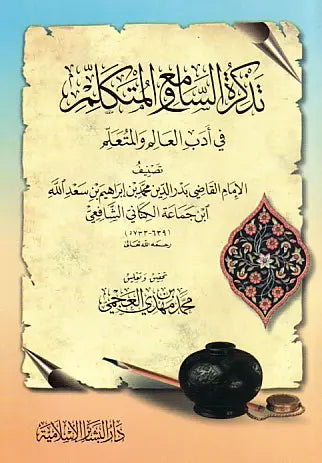 تذكرة السامع والمتكلم
في أدب العالم والمتعلم
تصنيف
الإمام القاضي بدر الدين محمد بن إبراهيم بن سعد الله
ابن جماعة الكناني الشافعي
(٦٣٩-٧٣٣هـ)
رحمه الله تعالى
تحقيق وتعليق
محمد بن مهدي العجمي
دار البشائر الإسلامية